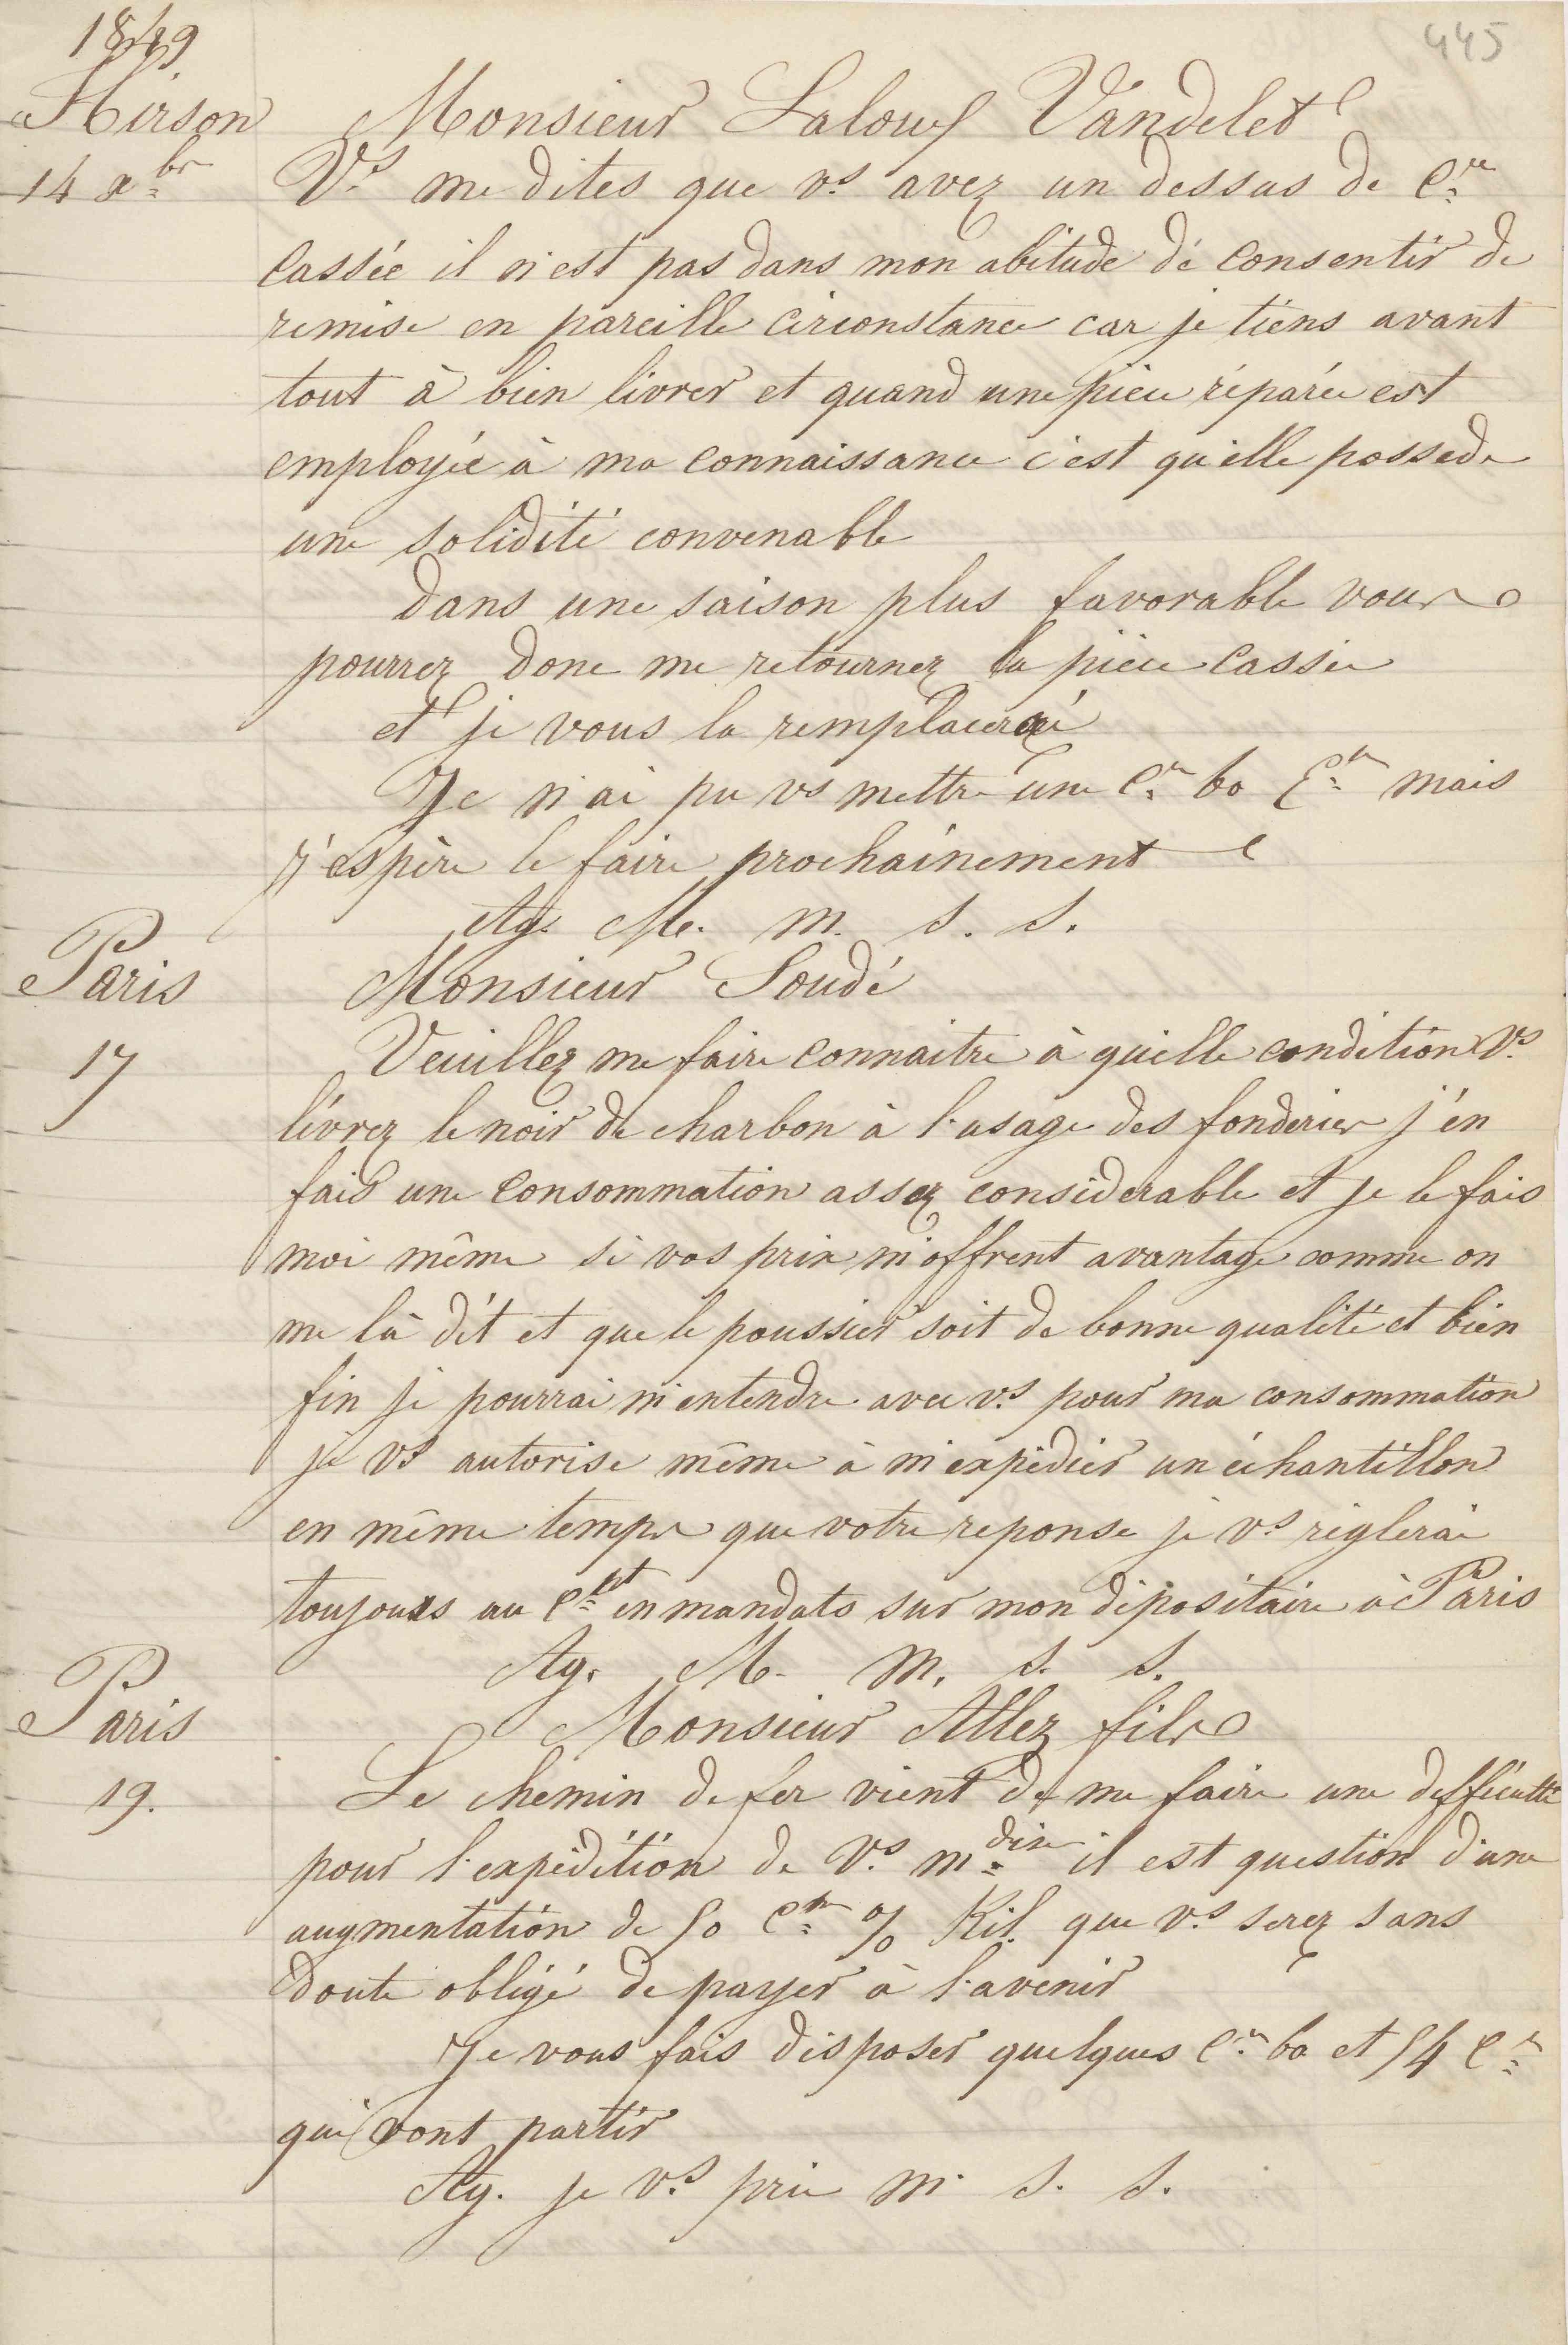 445
1849
Hirson
14 xbr
Monsieur Laloux Vandelet
Vs me dites que vs avez un dessus de Cre
cassée il n'est pas dans mon abitude de consentir de
remise en pareille circonstance car je tiens avant
tout à bien livrer et quand une pièce réparée est
employée à ma connaissance c'est qu'elle possede
une solidité convenable
dans une saison plus favorable vous
pourrez donc me retournez la pièce cassée
et je vous la remplacerai
Je n'ai pu vs mettre une Cre 60 mais
j'espère le faire prochainement
Ag. Me. m. s. s.
Paris
17
Monsieur Soudé
Veuillez me faire connaitre à quelle condition Vs
livrez le noir de charbon à l'usage des fonderies j'en
fais une consommation assez considerable et je le fais
moi même si vos prix m'offrent avantage comme on
me là dit et que le poussier soit de bonne qualité et bien
fin je pourrai m'entendre avec vs pour ma consommation
je vs autorise même à m'expédier un échantillon
en même temps que votre reponse je vs réglerai
toujours au Cpt en mandats sur mon dépositaire à Paris
Ag. M. m. s. s.
Paris
19.
Monsieur Allez fils
Le chemin de fer vient de me faire une difficulté
pour l'expédition de Vs mdise il est question d'une
augmentation de 50 Cm % Kil. que vs serez sans
doute obligé de payer à l'avenir
Je vous fais disposer quelques Cre 60 et 54 Cre
qui vont partir
Ag. je vs prie m. s. s.